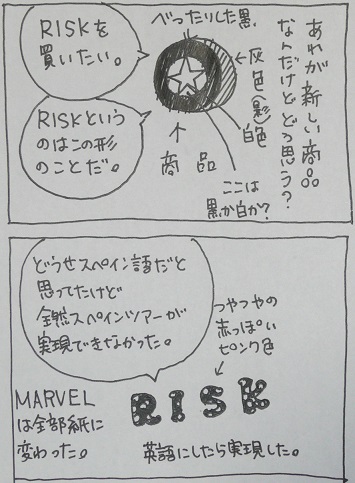 あれが新しい商品
なんだけどどう思う？
べったりした黒
←灰色(影)
白色
RISKを
買いたい。
RISKという
のはこの形
のことだ。
商品
ここは
黒か白か？
どうせスペイン語だと
思ってたけど
全然スペインツアーが
実現できなかった。
つやつやの
赤っぽい
ピンク色
RISK
MARVEL
は全部紙に
変わった。
英語にしたら実現した。